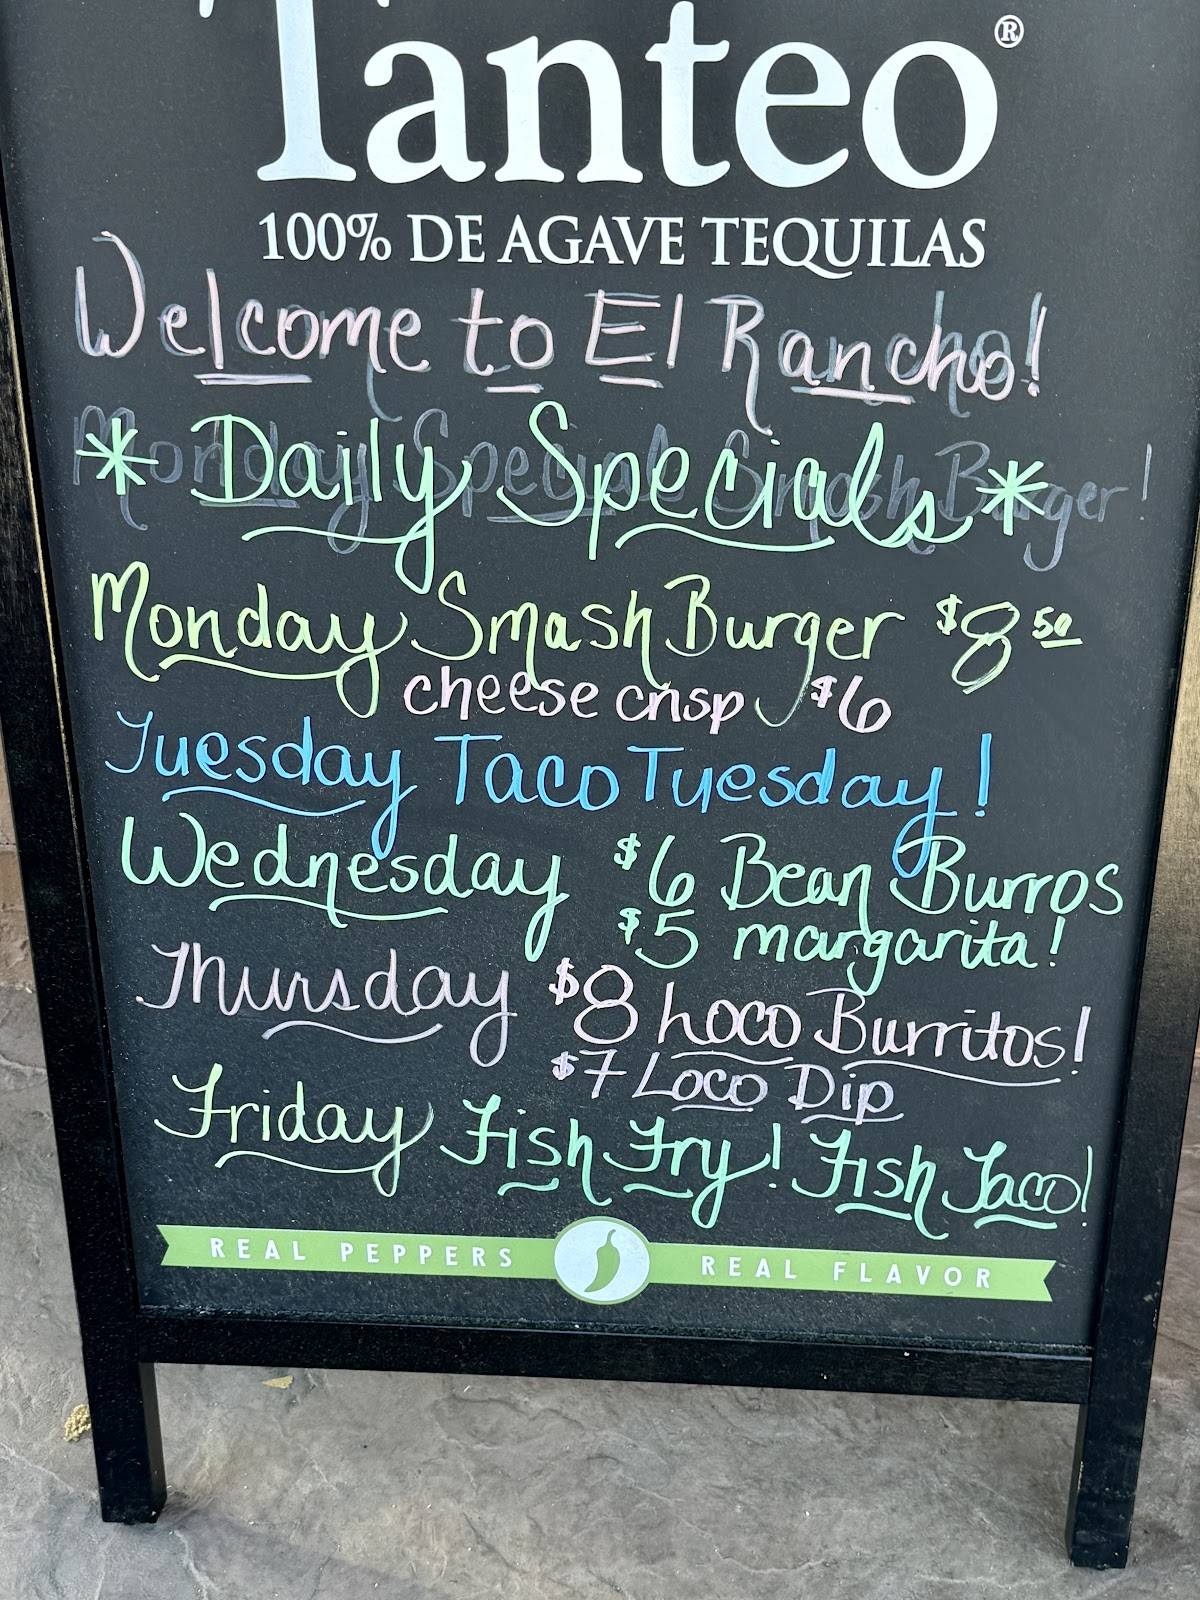 Tanteo®
100% DE AGAVE TEQUILAS
Welcome to El Rancho!
* Daily Specials *
Monday Special Smash Burger!
Monday Smash Burger $8 50
cheese crisp $6
Tuesday Taco Tuesday!
Wednesday $6 Bean Burros
$5 margarita!
Thursday $8 Loco Burritos!
$7 Loco Dip
Friday Fish Fry! Fish Taco!
REAL PEPPERS REAL FLAVOR